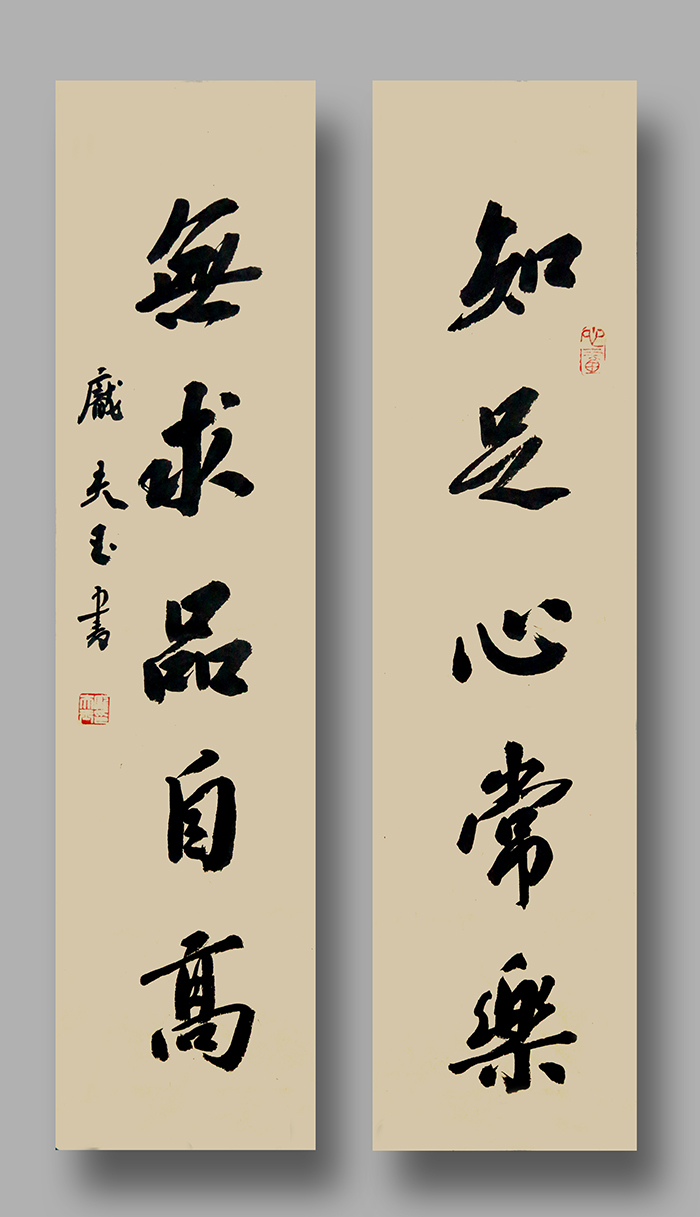 知足心常樂
無求品自高
龐夫玉書